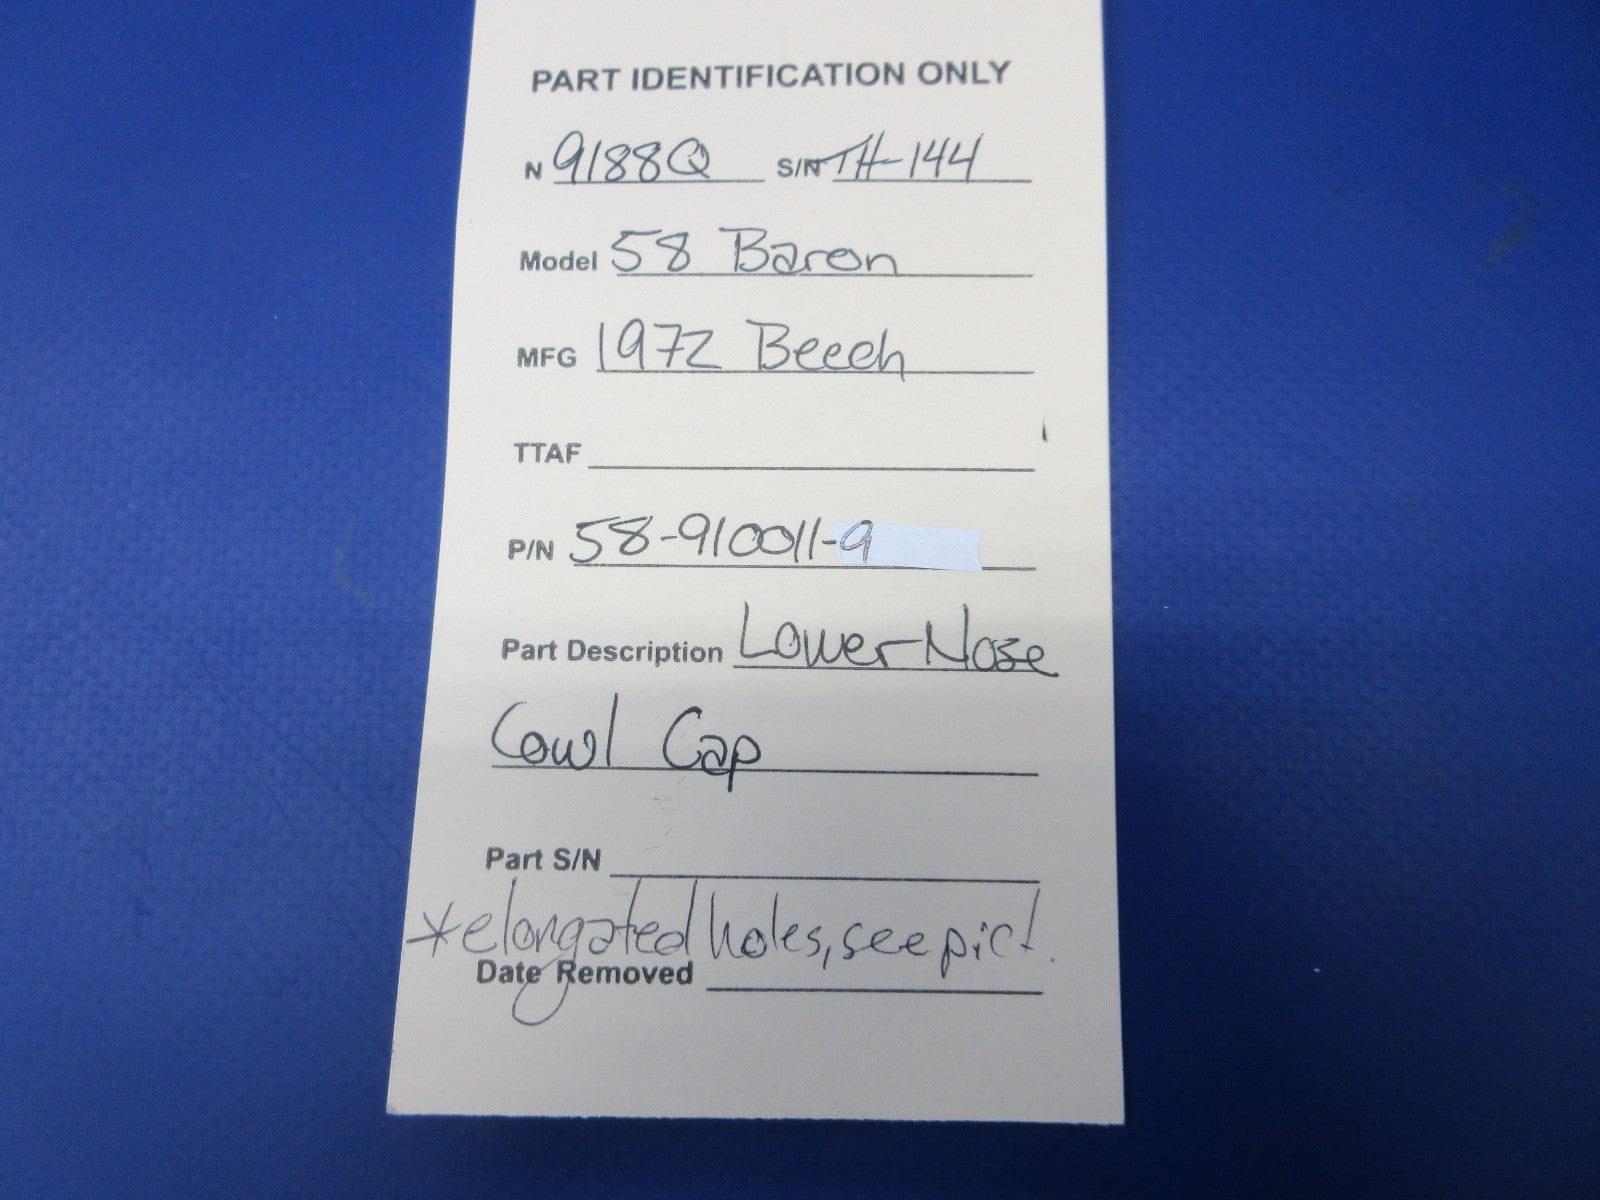 PART IDENTIFICATION ONLY
N 9188Q S/N TH-144
Model 58 Baron
MFG 1972 Beech
TTAF
P/N 58-910011-9
Part Description Lower Nose
Cowl Cap
Part S/N
*elongated holes, see pict.
Date Removed